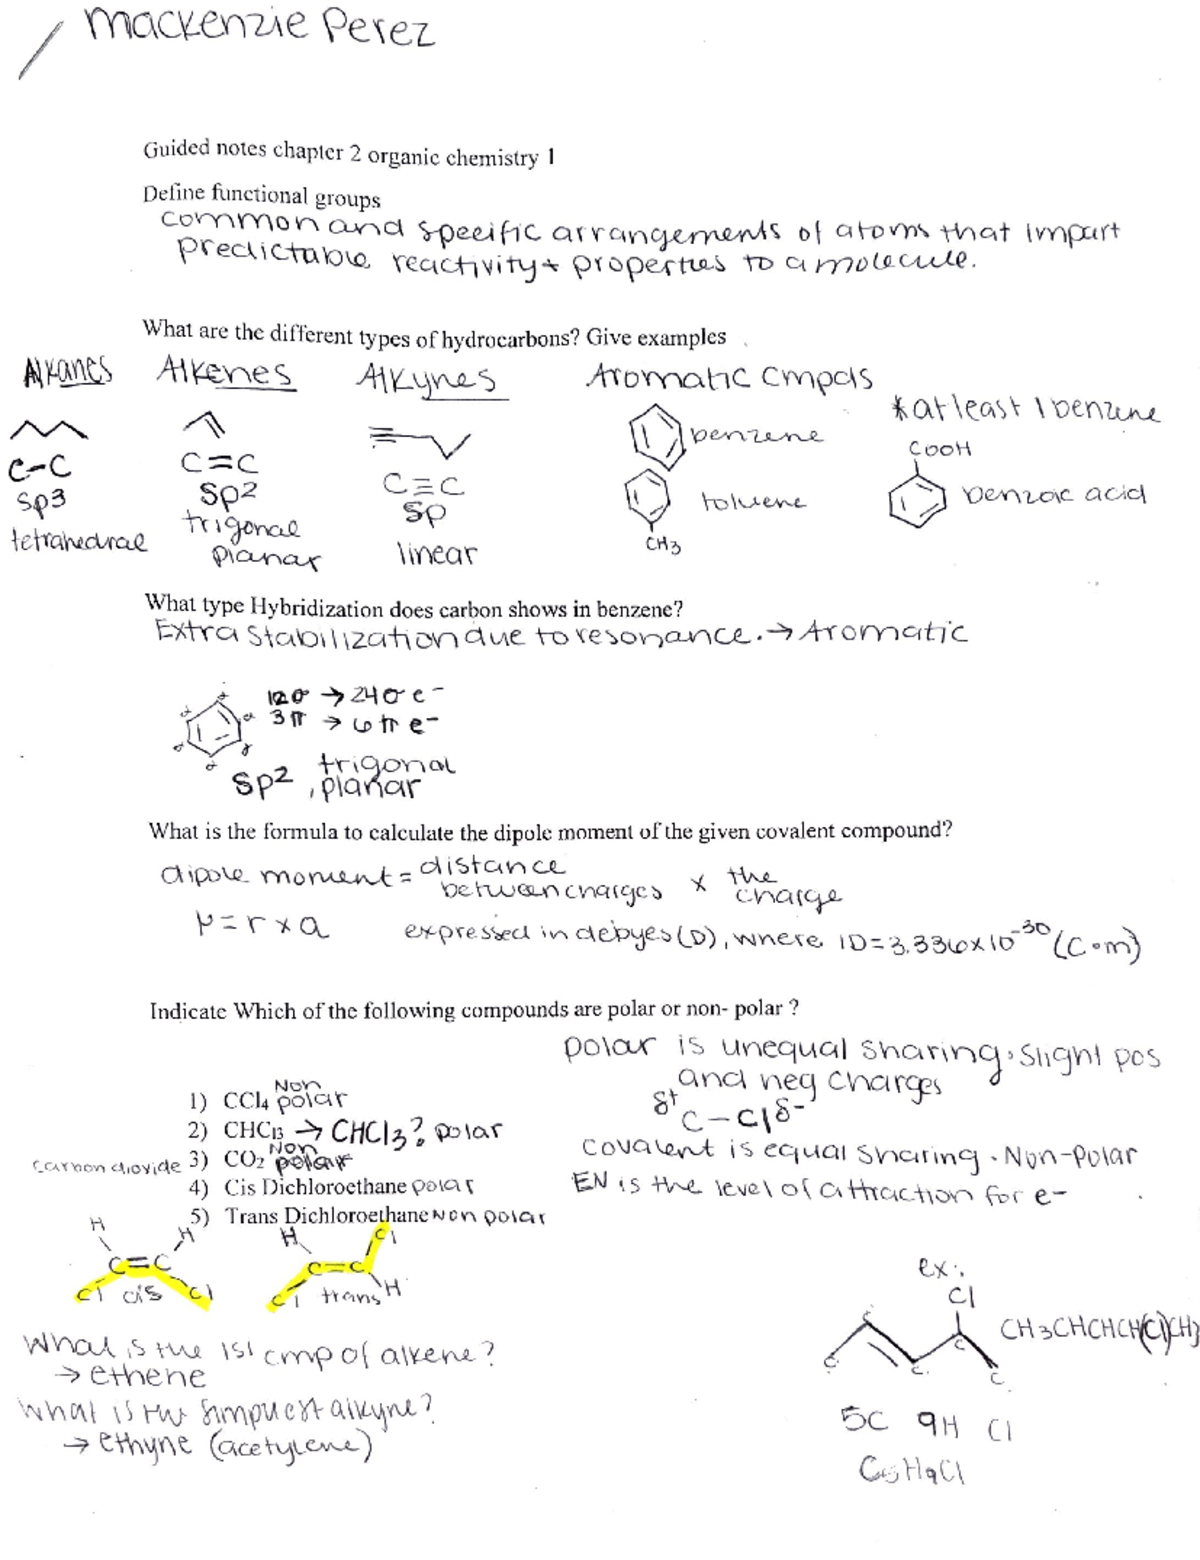 Mackenzie Perez
Guided notes chapter 2 organic chemistry 1
Define functional groups
common and specific arrangements of atoms that impart
predictable reactivity + properties to a molecule.
What are the different types of hydrocarbons? Give examples
Alkanes Alkenes Alkynes Aromatic cmpds
*at least 1 benzene
benzene
COOH
C-C C=C C≡C
sp3 sp2 sp
toluene benzoic acid
CH3
tetrahedral trigonal planar linear
What type Hybridization does carbon shows in benzene?
Extra stabilization due to resonance. → Aromatic
12σ → 24σ e-
3π → 6π e-
sp2, trigonal planar
What is the formula to calculate the dipole moment of the given covalent compound?
dipole moment = distance between charges x the charge
μ = r x Q expressed in debyes (D), where 1D = 3.336x10^-30 (C•m)
Indicate Which of the following compounds are polar or non- polar ?
polar is unequal sharing. slight pos
and neg charges
δ+ C-Cl δ-
covalent is equal sharing. Non-polar
EN is the level of attraction for e-
1) CCl4 Non polar
2) CHCl3 → CHCl3? polar
carbon dioxide 3) CO2 Non polar
4) Cis Dichloroethane polar
5) Trans Dichloroethane Non polar
H H C=C Cl Cl cis
H Cl C=C Cl H trans
What is the 1st cmp of alkene?
→ ethene
What is the simplest alkyne?
→ ethyne (acetylene)
ex:
Cl
C C C C C
CH3CHCHCH(Cl)CH3
5C 9H Cl
C5H9Cl